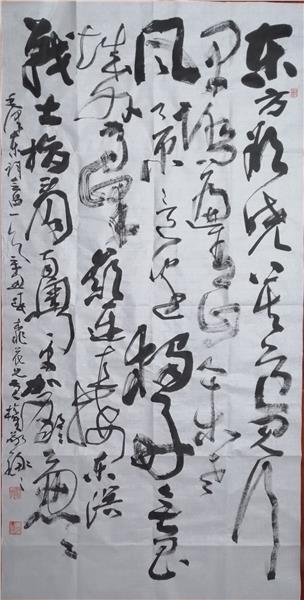 东方欲晓莫道君行
早踏遍青山人未老
风景这边独好会昌
城外高峰颠连直接东溟
战士指看南粤更加郁郁葱葱
毛泽东词会昌一首辛丑